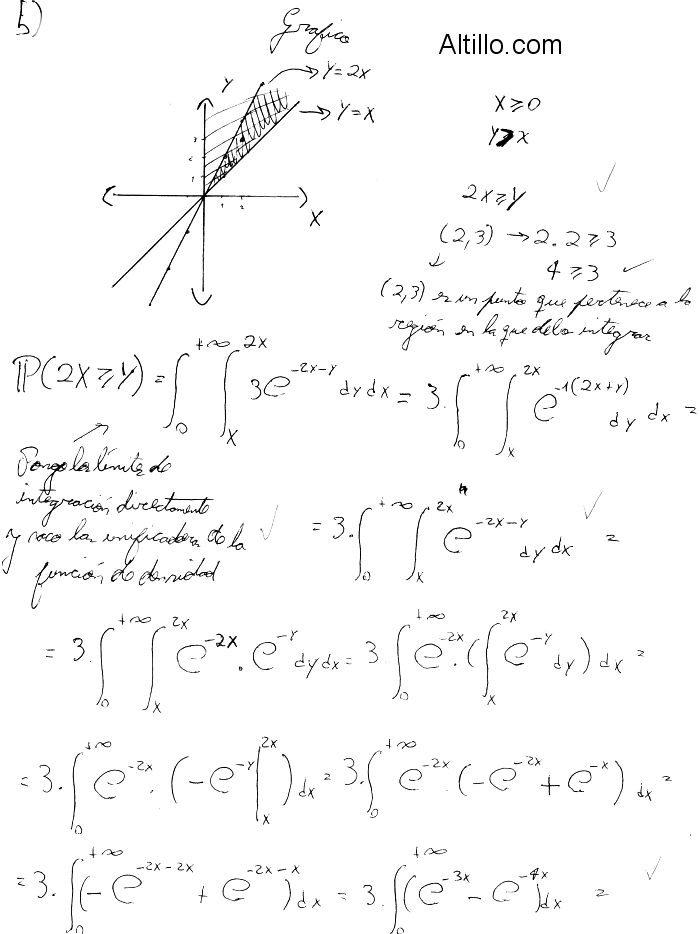 5)
Grafico
Altillo.com
Y
Y=2x
Y=x
3
2
1
1 2
X
X≥0
Y>x
2x≥y
(2,3) → 2.2≥3
4≥3
(2,3) es un punto que pertenece a la
región en la que debo integrar
P(2X≥Y) = ∫_0^{+∞} ∫_x^{2x} 3e^{-2x-y} dy dx = 3.∫_0^{+∞} ∫_x^{2x} e^{-1(2x+y)} dy dx =
Pongo los límites de
integración directamente
y saco las de la
función de densidad
= 3.∫_0^{+∞} ∫_x^{2x} e^{-2x-y} dy dx =
= 3.∫_0^{+∞} ∫_x^{2x} e^{-2x}.e^{-y} dy dx = 3.∫_0^{+∞} e^{-2x}.(∫_x^{2x} e^{-y} dy) dx =
= 3.∫_0^{+∞} e^{-2x}.(-e^{-y}|_x^{2x}) dx = 3.∫_0^{+∞} e^{-2x}.(-e^{-2x}+e^{-x}) dx =
= 3.∫_0^{+∞} (-e^{-2x-2x} + e^{-2x-x}) dx = 3.∫_0^{+∞} (e^{-3x} - e^{-4x}) dx =